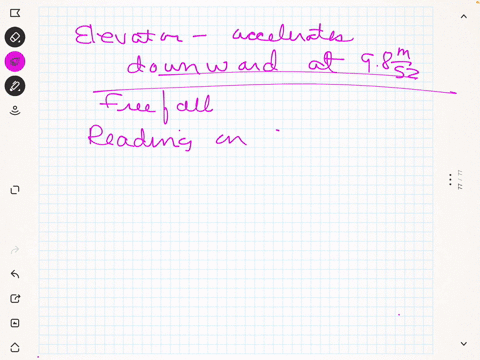 Elevator - accelerates
downward at 9.8 m/s2
Free fall
Reading on
77 / 77